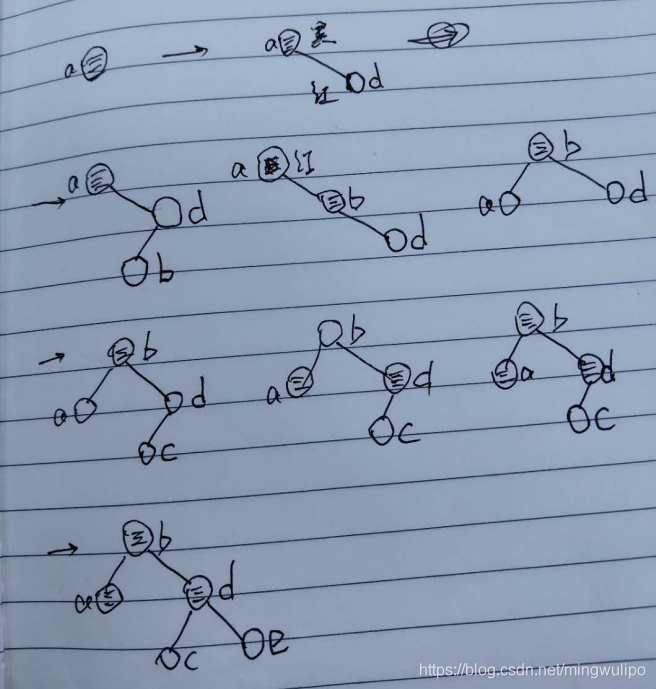 a → a 黑
红 d
→ a d a 红 b
b d a d
b
→ b b b
a d a d a d
c c c
→ b
a d
c e
https://blog.csdn.net/mingwulipo